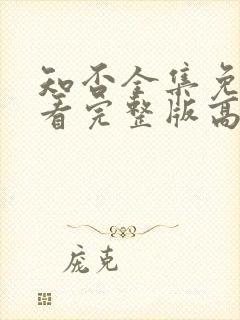 知否全集免
看完整版高
庞克